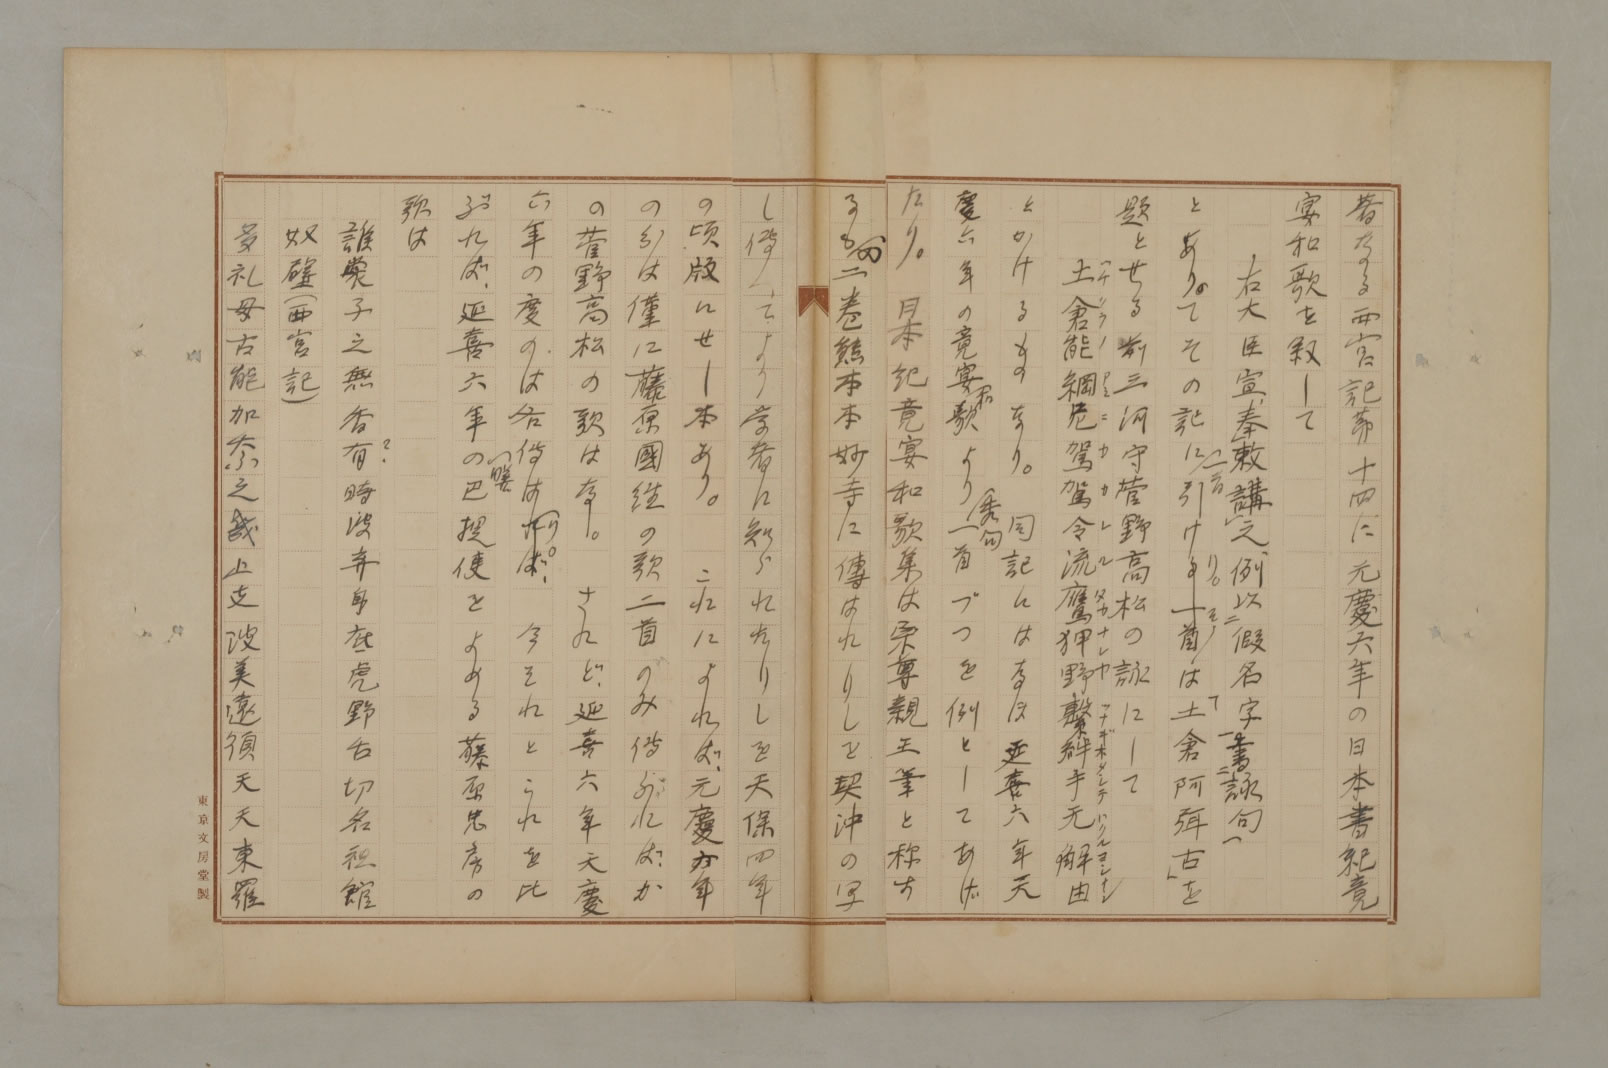 著なる西宮記第十四に元慶六年の日本書紀竟
宴和歌を叙して
右大臣宣、奉敕講之例以二假名字一書二詠句一
とありてその記に引ける一首は土倉阿弭古を
題とせる前三河守菅野高松の詠にして
土倉能網 駕令流鷹狎野繋絆手无解由
とかけるものなり。同記にはなほ延喜六年天
慶六年の竟宴和歌より一首づつを例としてあげ
たり。日本紀竟宴和歌集は宗尊親王筆と称す
るもの二巻熊本本妙寺に傳はれりしを契沖の写
し傳へてより学者に知られたりしを天保四年
の頃版にせし本あり。これによれば、元慶六年
のかは僅に藤原國経の歌二首のみ傳はれば、か
の菅野高松の歌はなし。されど、延喜六年天慶
六年の度のは各傳はれり。今それとこれを比
ぶれば、延喜六年の巴提使をよめる藤原忠房の
歌は
誰 子之無香有時波弃身 虎野舌切名袒舘
奴礒(西宮記)
多礼母古能加奈之幾止支波美遠須天天東羅
東京文房堂製